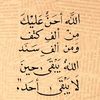 اللّٰه أحنّ عليك
من ألف كتف
ومن ألف سند
اللّٰه يبقى حين
لا يبقى أحد.